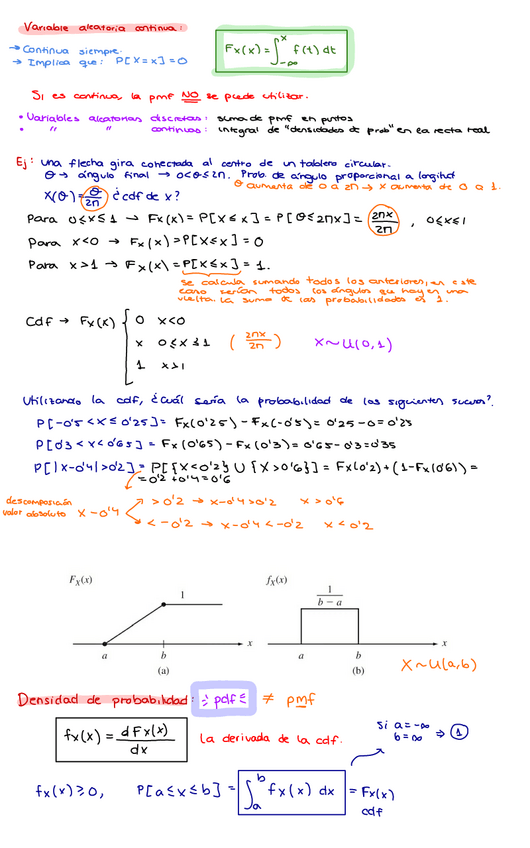 Variable aleatoria continua:
→ Continua siempre.
→ Implica que: P[X=x]=0
Fx(x) = ∫_{-∞}^{x} f(t) dt
Si es continua, la pmf NO se puede utilizar.
• Variables aleatorias discretas: suma de pmf en puntos
• " " continuas: integral de "densidades de prob" en la recta real
Ej: una flecha gira conectada al centro de un tablero circular.
θ → ángulo final → 0<θ≤2π. Prob. de ángulo proporcional a longitud
θ aumenta de 0 a 2π → x aumenta de 0 a 1.
X(θ) = θ/2π ¿cdf de x?
Para 0≤x≤1 → Fx(x) = P[X≤x] = P[θ≤2πx] = 2πx/2π , 0≤x≤1
Para x<0 → Fx(x) = P[X≤x] = 0
Para x>1 → Fx(x) = P[X≤x] = 1.
se calcula sumando todos los anteriores, en este
caso serían todos los ángulos que hay en una
vuelta. La suma de las probabilidades es 1.
Cdf → Fx(x) {
0 x<0
x 0≤x≤1 (2πx/2π) X∼U(0,1)
1 x>1
Utilizando la cdf, ¿cuál sería la probabilidad de los siguientes sucesos?
P[-0'5 < x ≤ 0'25] = Fx(0'25) - Fx(-0'5) = 0'25-0=0'25
P[0'3 < x < 0'65] = Fx(0'65) - Fx(0'3) = 0'65-0'3=0'35
P[|x-0'4|>0'2] = P[{x<0'2} ∪ {x>0'6}] = Fx(0'2)+(1-Fx(0'6)) =
= 0'2 + 0'4 = 0'6
descomposición
valor absoluto x-0'4
> 0'2 → x-0'4>0'2 x>0'6
< -0'2 → x-0'4<-0'2 x<0'2
F_X(x)
1
a b x
(a)
f_X(x)
1/(b − a)
a b x
(b)
X∼U(a,b)
Densidad de probabilidad: pdf ≠ pmf
fx(x) = dFx(x)/dx
la derivada de la cdf.
si a=-∞
b=∞ ⇒ 1
fx(x) ≥ 0, P[a≤x≤b] = ∫_{a}^{b} fx(x) dx = Fx(x)
cdf